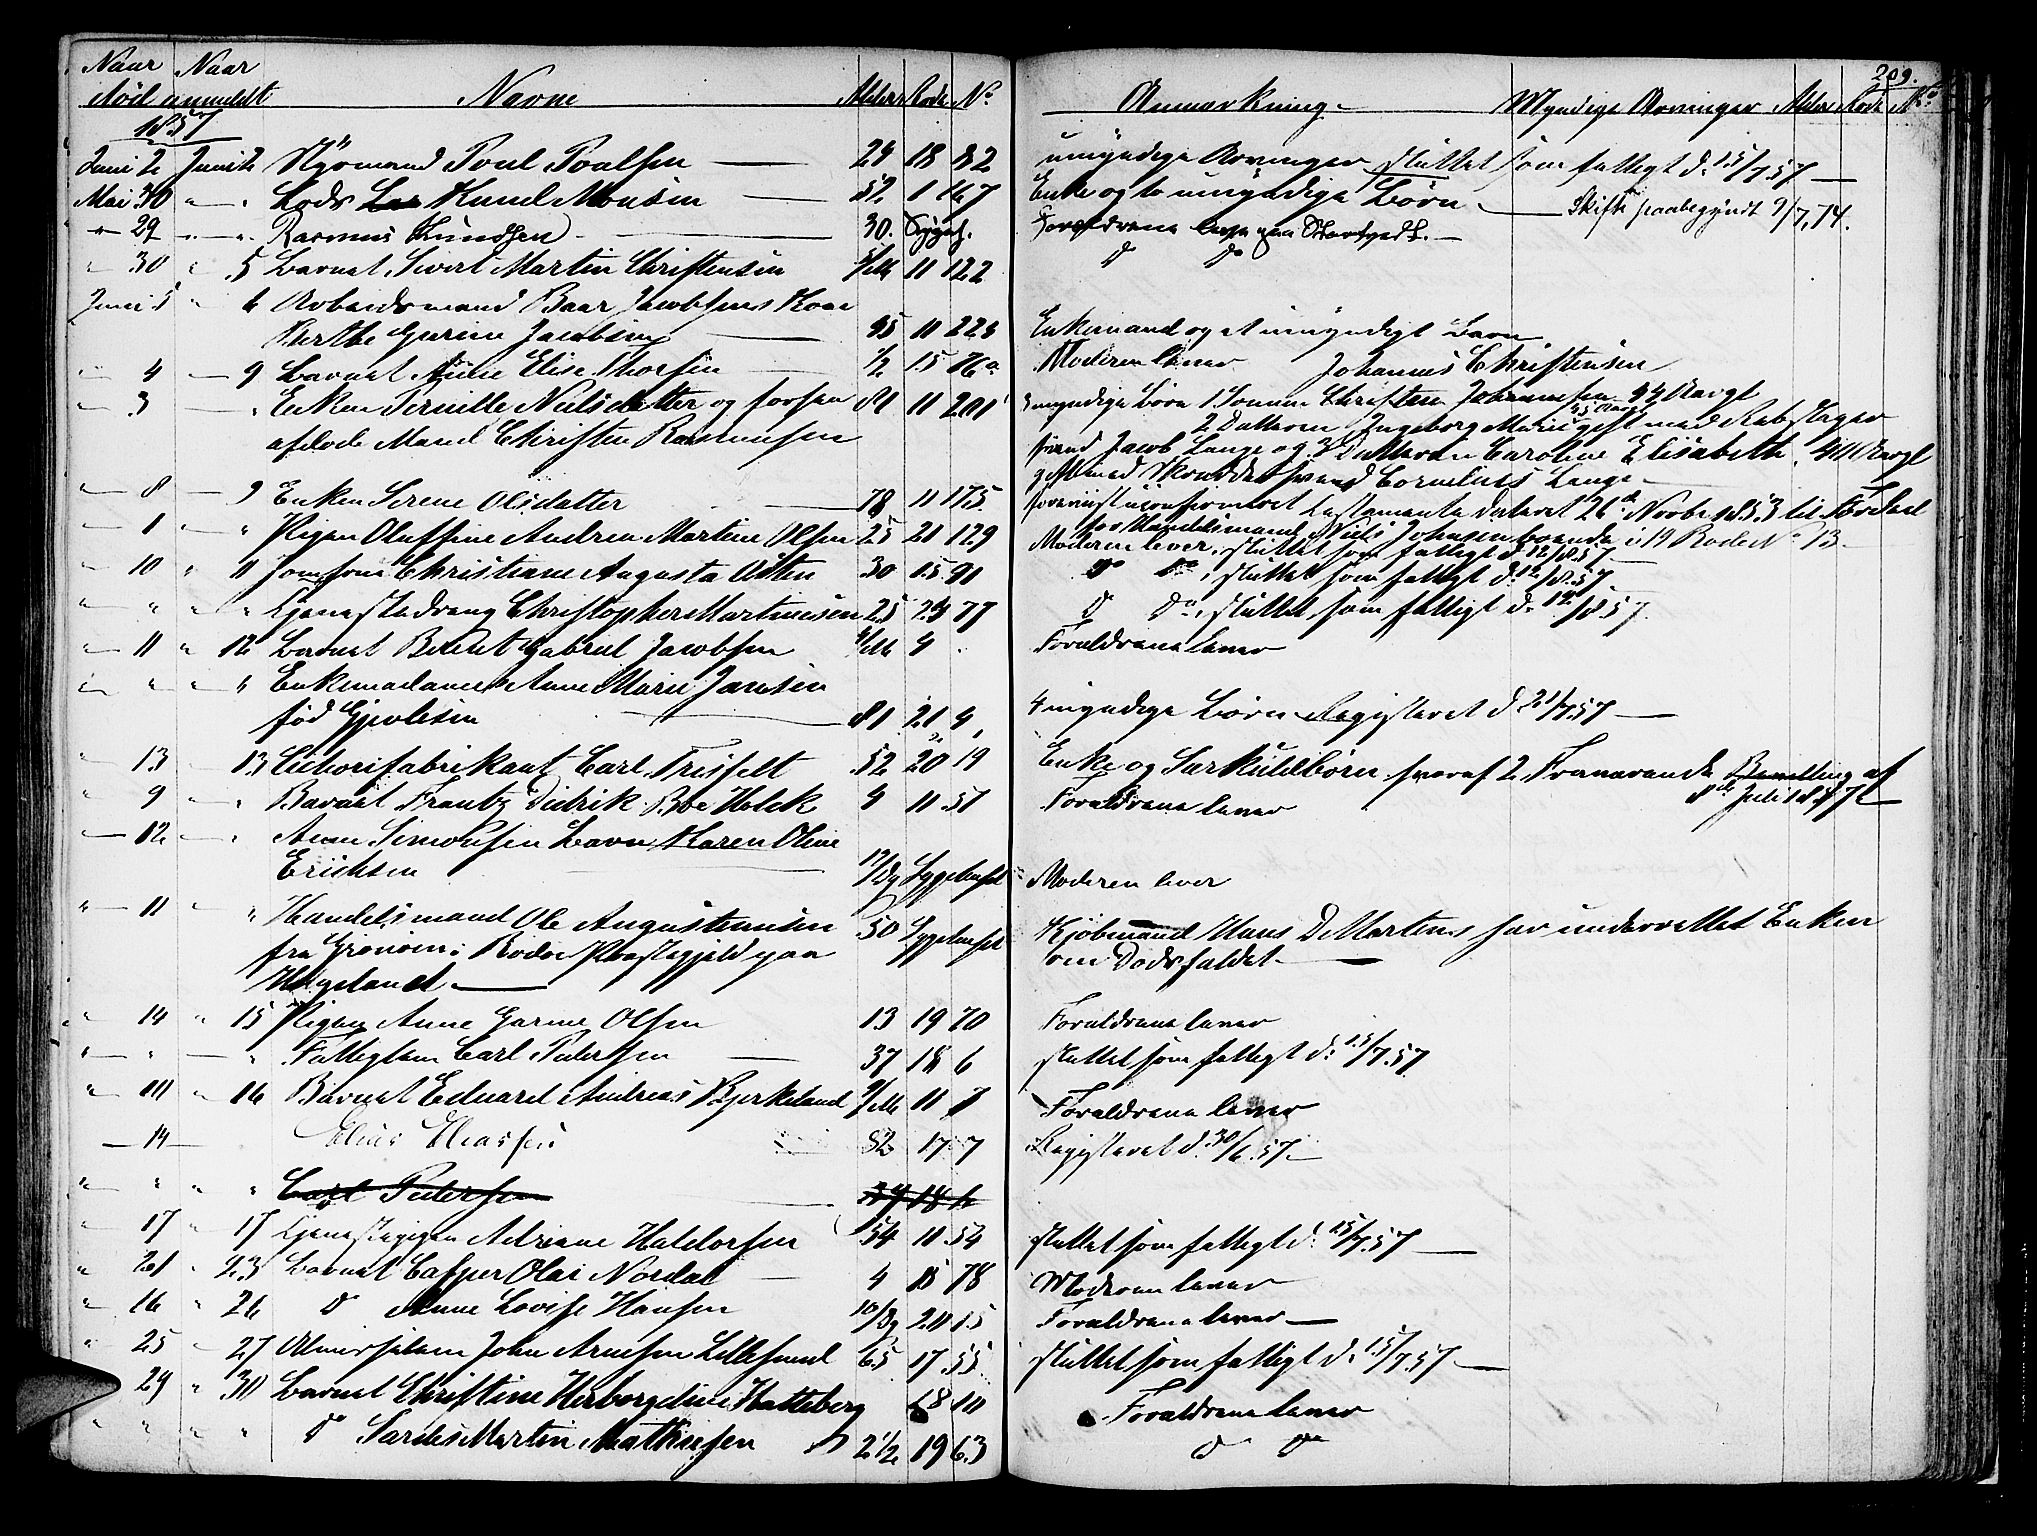 209.
Naar Naar
død anmeldt Navne Alder Rode No Anmærkning. Myndige Arvinger Alder Rode No
1857
Juni 2 Juni 2 Styrmand Poul Poulsen 28 18 82 umyndige Arvinger sluttet som fattigt d. 15/7 57
Mai 30 " Lods Knud Monsen 52 1 Enke og to umyndige Børn. Skifte paabegyndt 9/7, 74.
" 29 " " Rasmus Knudsen 30. Sygeh. Forældrene leve
" 30 " 5 Barnet Sivert Martin Christensen 11 122 do do
Juni 5 " 6 Arbeidsmand Baar Jacobsens Kone
Berthe Gurine Jacobsen 11 223 Enkemand og et umyndigt Barn
" 4 9 Barnet Elise Thorsen 1/2 15 76a Moderen lever Johannes Christensen
" 3 " Enken Pernille Nielsdatter og forhen 81 11 201 3 myndige Børn 1. Sønnen Christen Johannesen 44 Aargl
afdøde Mand Christen Rasmussen 2 Datteren Ingeborg Marie gift med Rebslager
svend Jacob Lange og 3 Datteren Caroline Elisabeth 40 Aargl
gift med Skrædersvend Cornelius Lange
" 8 9 Enken Serene Olsdatter 78 11 175. foreviist uconfirmeret Testamente dateret 26de Novbr 1853 til Fordeel
for Handelsmand Niels Johnsen boende i 19 Rode No 13
" 1 " Pigen Oluffine Andrea Martine Olsen 25 21 129 Moderen lever, sluttet som fattigt d. 12/8 57
" 10 " 11 Jomfrue Christiane Augusta Olsen 30 15 91 do do, sluttet som fattigt d. 12/8 57.
" " " " Tjenestedreng Christopher Martinusen 25 24 77 do do, sluttet som fattigt d. 12/8 57.
" 11 " 12 Barnet Berent Gabriel Jacobsen 4/M 4 Forældrene lever
" " " " Enkemadame Anne Marie Jansen
fød Gjertsen 81 21 4, 4 myndige Børn Registeret d. 21/7 57
" 13 13 Cichorifabrikant Carl Trisfelt 52 20 19 Enke og Særkuldbørn hvoraf 2 Fraværende Bevilling af
8de Juli 1857
" 9 " Barnet Frantz Didrik Boe Holck 9 11 51 Forældrene lever
12 " Anne Simonsen Barn Karen Oline
Erichsen 17/Dg Sygehuset Moderen lever
" 11 " Handelsmand Ole Augustinusen 50 Sygehuset Kjøbmand Hans D Martens har underrettet Enken
fra Grønøen i Rødø Præstegjeld paa om Dødsfaldet
Helgeland.
" 14 " 15 Pigen Anne Gurine Olsen 13 19 70 Forældrene lever
" " " Fattiglem Carl Pedersen 37 18 6 sluttet som fattigt d. 15/7 57
" 10 " 16 Barnet Eduard Andreas Bjerkeland 9/M 11 7 Forældrene lever
14 Elias Eliassen 82 17 7 Registeret d. 30/6 57.
" " " " Carl Pedersen 37 18 6
" 17 " 17 Tjenestepigen Adriane Haldorsen 54 11 54 sluttet som fattigt d. 15/7 57
" 21 " 23 Barnet Casper Olai Nordal 4 15 78 Moderen lever
" 16 " 26 do Anne Lovise Hansen 10/Dg 20 15 Forældrene lever
" 25 27 Almisselem John Arnesen Lillesund 65 17 55 sluttet som fattigt d. 15/7 57
" 29 " 30 Barnet Christine Herborgeline Hatteberg 18 10 Forældrene lever
" " " " do Martin Mathiesen 2 1/2 19 63 do do